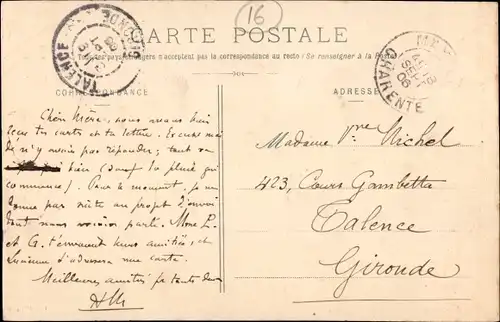 16
CARTE POSTALE
Tous les pays étrangers n'acceptent pas la correspondance au recto (Se renseigner à la Poste)
CORRESPONDANCE
ADRESSE
TALENCE
GIRONDE
CHARENTE
SEPT
06
Chère Mère, nous avons bien
tes cartes et ta lettre. Excuse moi
de n'y avoir pas répondu; tout va
bien (sauf la pluie qui
commence). Pour le moment, je ne
donne pas suite au projet d'envoi
dont nous avions parlé. Mme P.
et G. t'envoient leurs amitiés, et
Lucienne t'adressera une carte.
Meilleures amitiés pr tante
Madame Vve Michel
423, Cours Gambetta
Talence
Gironde